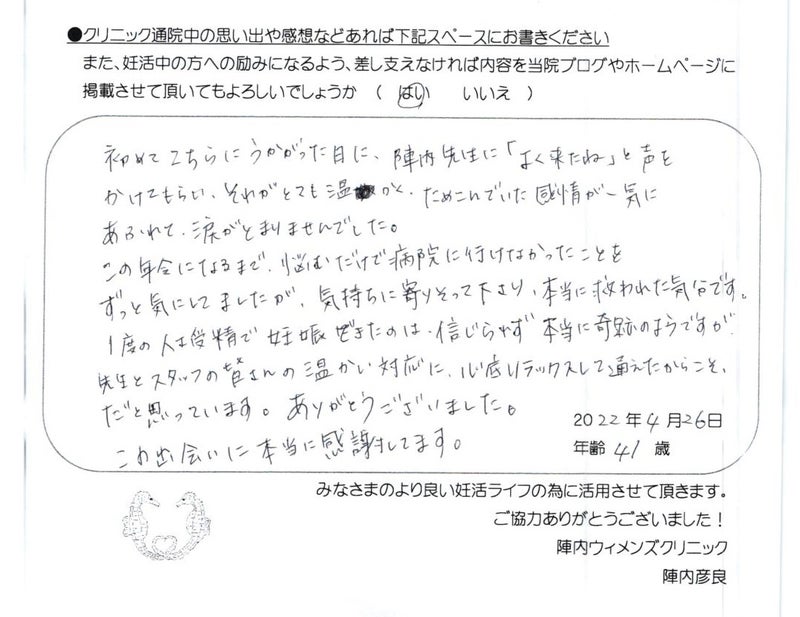 ●クリニック通院中の思い出や感想などあれば下記スペースにお書きください
また、妊活中の方への励みになるよう、差し支えなければ内容を当院ブログやホームページに
掲載させて頂いてもよろしいでしょうか （ はい いいえ ）
初めてこちらにうかがった日に、陣内先生に「よく来たね」と声を
かけてもらい、それがとても温かく、ためこんでいた感情が一気に
あふれて、涙がとまりませんでした。
この年令になるまで、悩むだけで病院に行けなかったことを
ずっと気にしてましたが、気持ちに寄りそって下さり、本当に救われた気分です。
1度の人工受精で妊娠できたのは、信じられず本当に奇跡のようですが、
先生とスタッフの皆さんの温かい対応に、心底リラックスして通えたからこそ、
だと思っています。ありがとうございました。
この出会いに本当に感謝してます。
2022年4月26日
年齢 41 歳
みなさまのより良い妊活ライフの為に活用させて頂きます。
ご協力ありがとうございました！
陣内ウィメンズクリニック
陣内彦良